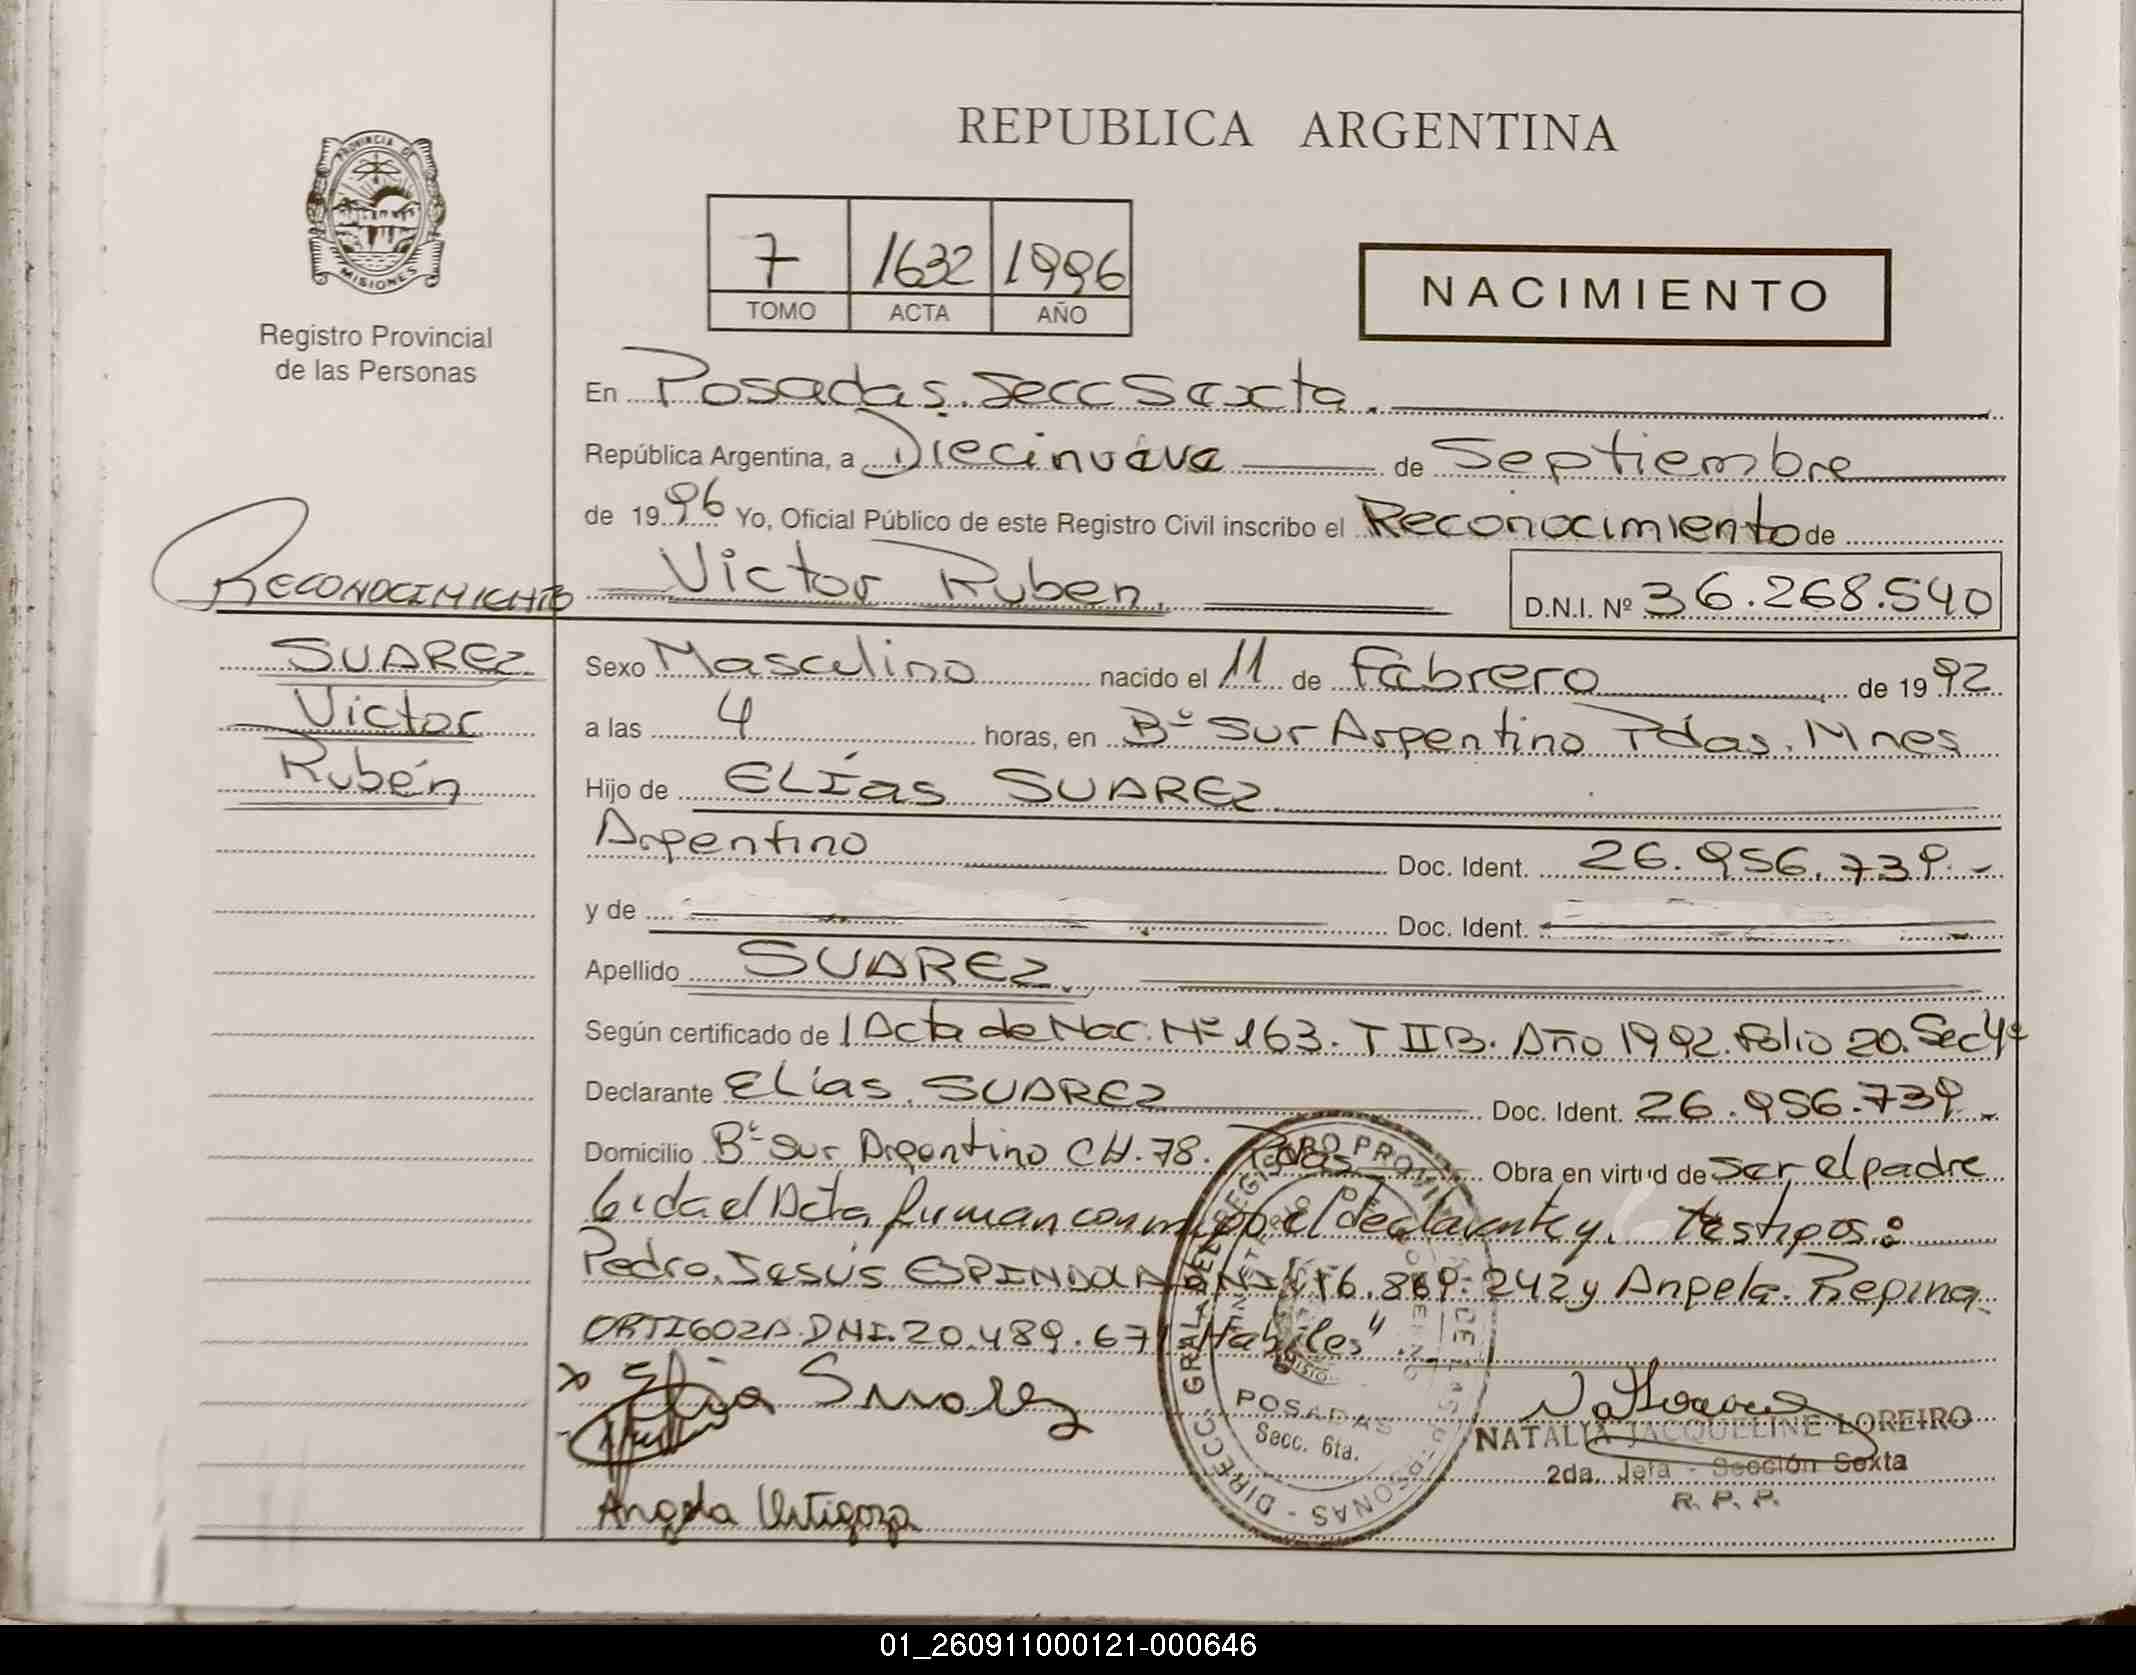 REPUBLICA ARGENTINA
PROVINCIA DE
MISIONES
Registro Provincial
de las Personas
7 1632 1996
TOMO ACTA AÑO
NACIMIENTO
En Posadas. Secc Sexta.
República Argentina, a Diecinueve de Septiembre
de 1996 Yo, Oficial Público de este Registro Civil inscribo el Reconocimiento de
RECONOCIMIENTO
Victor Ruben. D.N.I. Nº 36.268.540
SUAREZ
Victor
Rubén
Sexo Masculino nacido el 11 de Febrero de 1992
a las 4 horas, en Bº Sur Argentino Pdas. Mnes
Hijo de ELÍAS SUAREZ
Argentino Doc. Ident. 26.956.739.-
y de Doc. Ident.
Apellido SUAREZ.
Según certificado de 1 Acta de Nac. Nº 163. T II B. Año 1992. Folio 20. Sec 4ª
Declarante ELías. SUAREZ Doc. Ident. 26.956.739.-
Domicilio Bº Sur Argentino CH. 78. Pdas Obra en virtud de ser el padre
Leida el Acta, firman conmigo el declarante y testigos:
Pedro. Jesús ESPINDOLA DNI. 16.869.242 y Angela. Regina
ORTIGOZA. DNI. 20.489.671 "Habiles"
x Elia Suarez
Angela Ortigoza
DIRECC. GRAL. DEL REGISTRO PROVINCIAL DE LAS PERSONAS
POSADAS
Secc. 6ta.
NATALIA JACQUELINE LOREIRO
2da. Jefa - Sección Sexta
R. P. P.
01_260911000121-000646